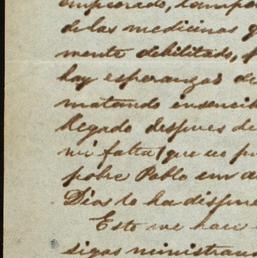 empeorado, tampo
de las medicinas q
mente debilitado, p
hay esperanzas de
matando insensib
llegado despues de
mi falta (que no pu
pobre Pablo em a
Dios lo ha dispue
Esto me hace
sigas ministran